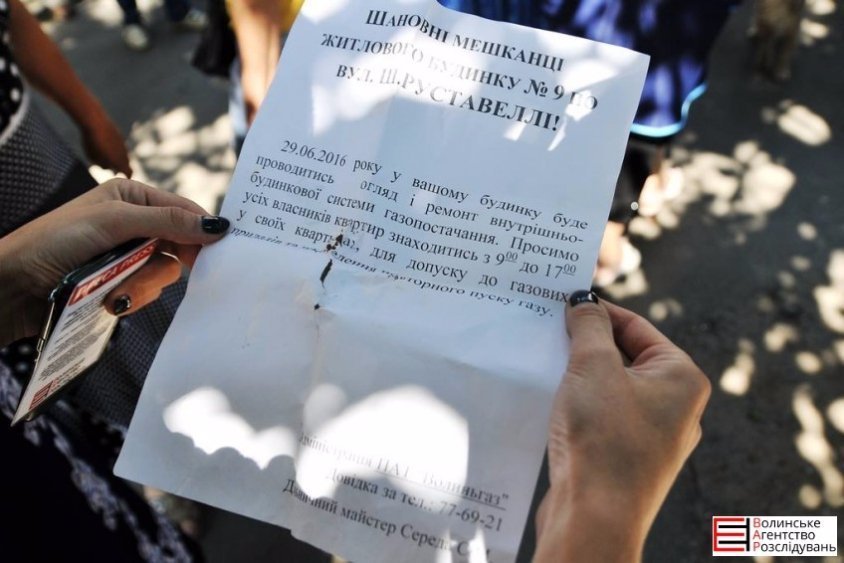 ШАНОВНІ МЕШКАНЦІ
ЖИТЛОВОГО БУДИНКУ № 9 ПО
ВУЛ. Ш.РУСТАВЕЛЛІ!
29.06.2016 року у вашому будинку буде
проводитись огляд і ремонт внутрішньо-
будинкової системи газопостачання. Просимо
усіх власників квартир знаходитись з 9⁰⁰ до 17⁰⁰
у своїх квартирах, для допуску до газових
приладів та повторного пуску газу.
Адміністрація ПАТ "Волиньгаз"
Довідка за тел.: 77-69-21
майстер
Волинське
Агентство
Розслідувань